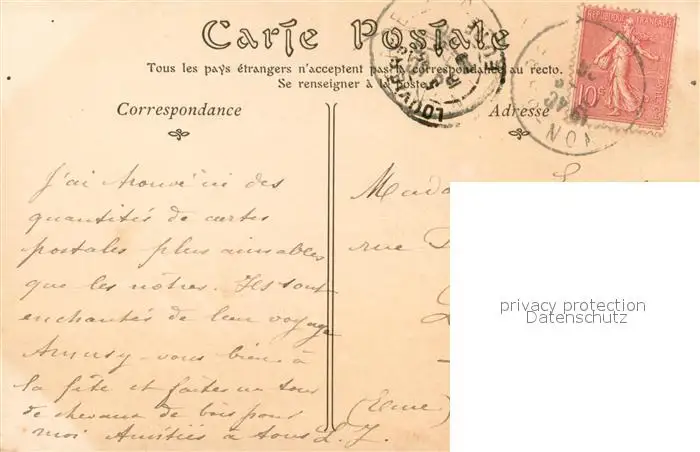 Carte Postale
Tous les pays étrangers n'acceptent pas la correspondance au recto.
Se renseigner à la Poste.
Correspondance
Adresse
REPUBLIQUE FRANÇAISE
10 c
J'ai trouvé ici des
quantités de cartes
postales plus aimables
que les nôtres. Ils sont
enchantés de leur voyage
Amusez-vous bien à
la fête et faites un tour
de chevaux de bois pour
moi Amitiés à tous L. J.
rue
(Eure)
privacy protection
Datenschutz